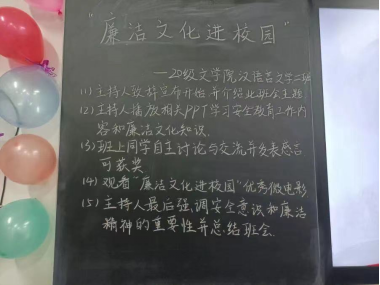 "廉洁文化进校园"
——20级文学院汉语言文学二班
(1)主持人致辞宣布开始,并介绍此班会主题
(2)主持人播放相关PPT学习安全教育工作内
容和廉洁文化知识.
(3)班上同学自主讨论与交流并发表感言
可获奖.
(4)观看"廉洁文化进校园"优秀微电影
(5)主持人最后强调安全意识和廉洁
精神的重要性并总结班会.